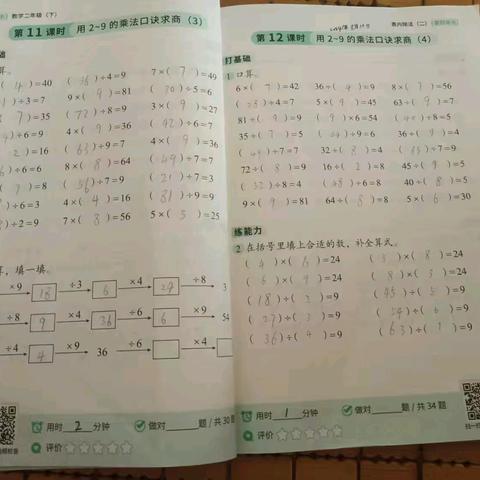 数学二年级（下）
第11课时 用2~9的乘法口诀求商（3）
7×( 7 )=49
9×( 9 )=81
3×( 9 )=27
4×( 9 )=36
( 42 )÷6=7
( 63 )÷9=7
4×( 9 )=36
8×( 8 )=64
( 49 )÷7=7
( 21 )÷7=3
4×( 4 )=16
( 81 )÷9=9
7×( 8 )=56
5×( 5 )=25
填一填。
×9 18 ÷3 6 ×4 24 ÷8 3
÷8 9 ×4 36 ÷6 6 ×9 54
÷4 4 ×9 36 ÷6 ×4
用时 2 分钟 做对 题/共30题
评价
表内除法（二）
第12课时 用2~9的乘法口诀求商（4）
打基础
1 口算。
6×( 7 )=42 36÷( 4 )=9 8×( 7 )=56
( 28 )÷4=7 5×( 9 )=45 63÷( 9 )=7
81÷( 9 )=9 ( 9 )×6=54 ( 40 )÷8=5
35÷( 7 )=5 ( 24 )÷6=4 36÷( 9 )=4
( 49 )÷7=7 32÷( 8 )=4 ( 63 )÷7=9
72÷( 8 )=9 16÷( 2 )=8 45÷( 9 )=5
( 32 )÷8=4 ( 48 )÷6=8 40÷( 8 )=5
9×( 9 )=81 64÷( 8 )=8 5×( 6 )=30
练能力
2 在括号里填上合适的数，补全算式。
( 4 )×( 6 )=24 ( 3 )×( 8 )=24
( 6 )×( 4 )=24 ( 8 )×( 3 )=24
( 18 )÷( 2 )=9 ( 45 )÷( 5 )=9
( 27 )÷( 3 )=9 ( 54 )÷( 6 )=9
( 36 )÷( 4 )=9 ( 63 )÷( 7 )=9
用时 1 分钟 做对 题/共34题
评价